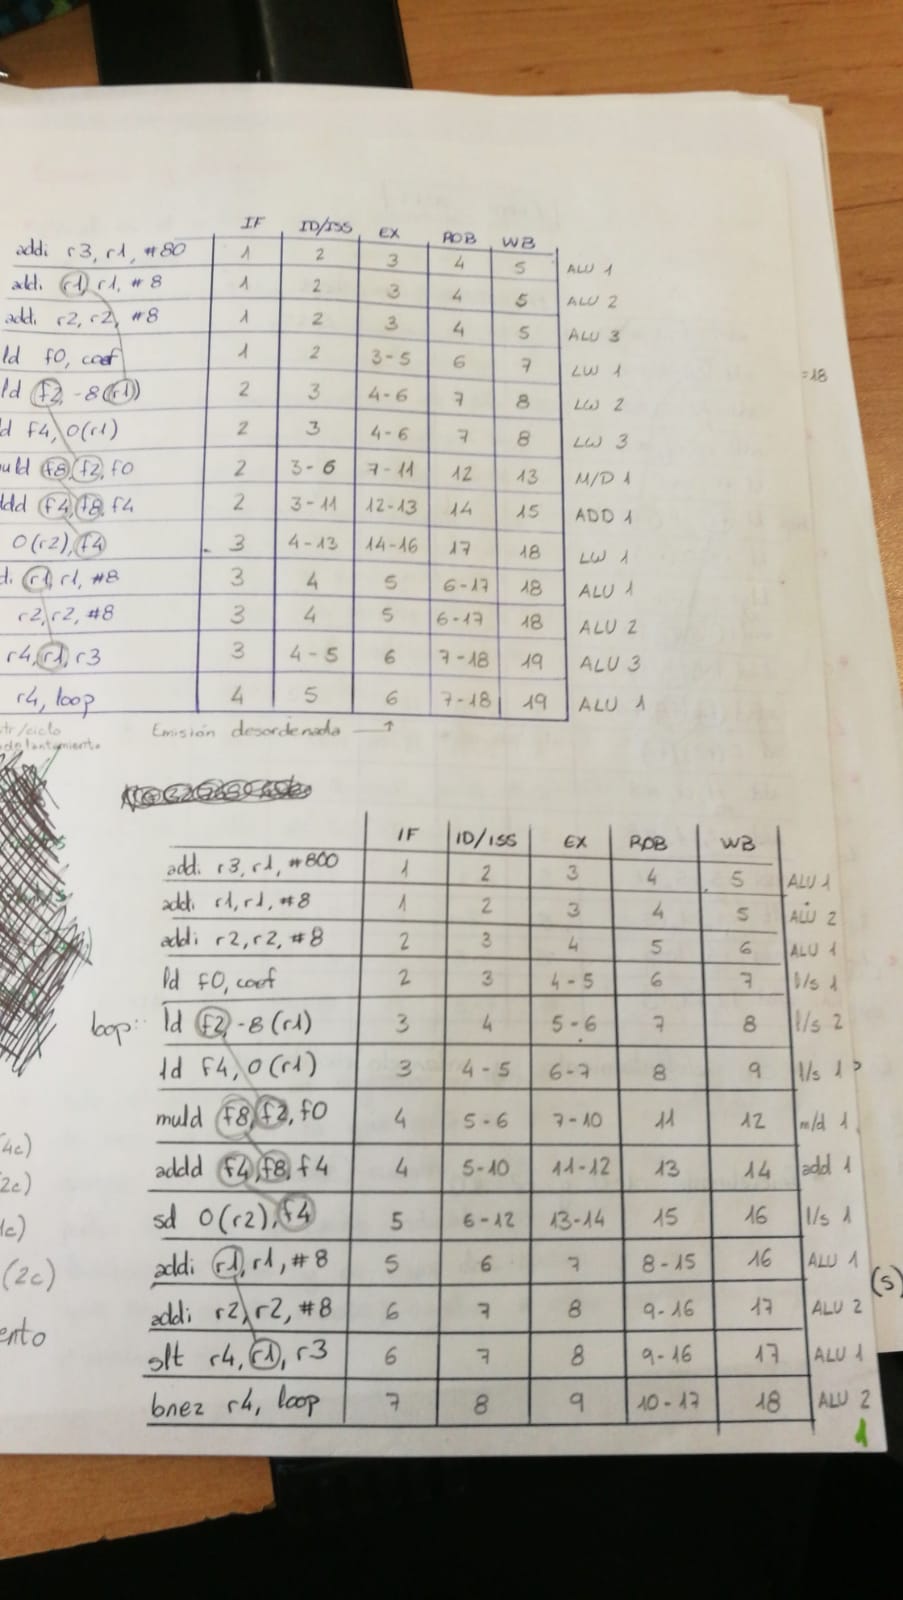 IF ID/ISS EX ROB WB
addi r3, r1, #80 1 2 3 4 5 ALU 1
addi r1, r1, #8 1 2 3 4 5 ALU 2
addi r2, r2, #8 1 2 3 4 5 ALU 3
ld f0, coef 1 2 3-5 6 7 LW 1
ld f2, -8(r1) 2 3 4-6 7 8 LW 2
=18
d f4, 0(r1) 2 3 4-6 7 8 LW 3
uld f8, f2, f0 2 3-6 7-11 12 13 M/D 1
ddd f4, f8, f4 2 3-11 12-13 14 15 ADD 1
0(r2), f4 3 4-13 14-16 17 18 LW 1
di r1, r1, #8 3 4 5 6-17 18 ALU 1
r2, r2, #8 3 4 5 6-17 18 ALU 2
r4, r1, r3 3 4-5 6 7-18 19 ALU 3
r4, loop 4 5 6 7-18 19 ALU 1
tr/ciclo Emisión desordenada
adelantamiento
IF ID/ISS EX ROB WB
addi r3, r1, #800 1 2 3 4 5 ALU 1
addi r1, r1, #8 1 2 3 4 5 ALU 2
addi r2, r2, #8 2 3 4 5 6 ALU 1
ld f0, coef 2 3 4-5 6 7 l/s 1
loop: ld f2, -8(r1) 3 4 5-6 7 8 l/s 2
ld f4, 0(r1) 3 4-5 6-7 8 9 l/s 1
muld f8, f2, f0 4 5-6 7-10 11 12 m/d 1
(4c)
addd f4, f8, f4 4 5-10 11-12 13 14 add 1
2c)
sd 0(r2), f4 5 6-12 13-14 15 16 l/s 1
1c)
addi r1, r1, #8 5 6 7 8-15 16 ALU 1
(2c)
(s)
addi r2, r2, #8 6 7 8 9-16 17 ALU 2
ento
slt r4, r1, r3 6 7 8 9-16 17 ALU 1
bnez r4, loop 7 8 9 10-17 18 ALU 2
1